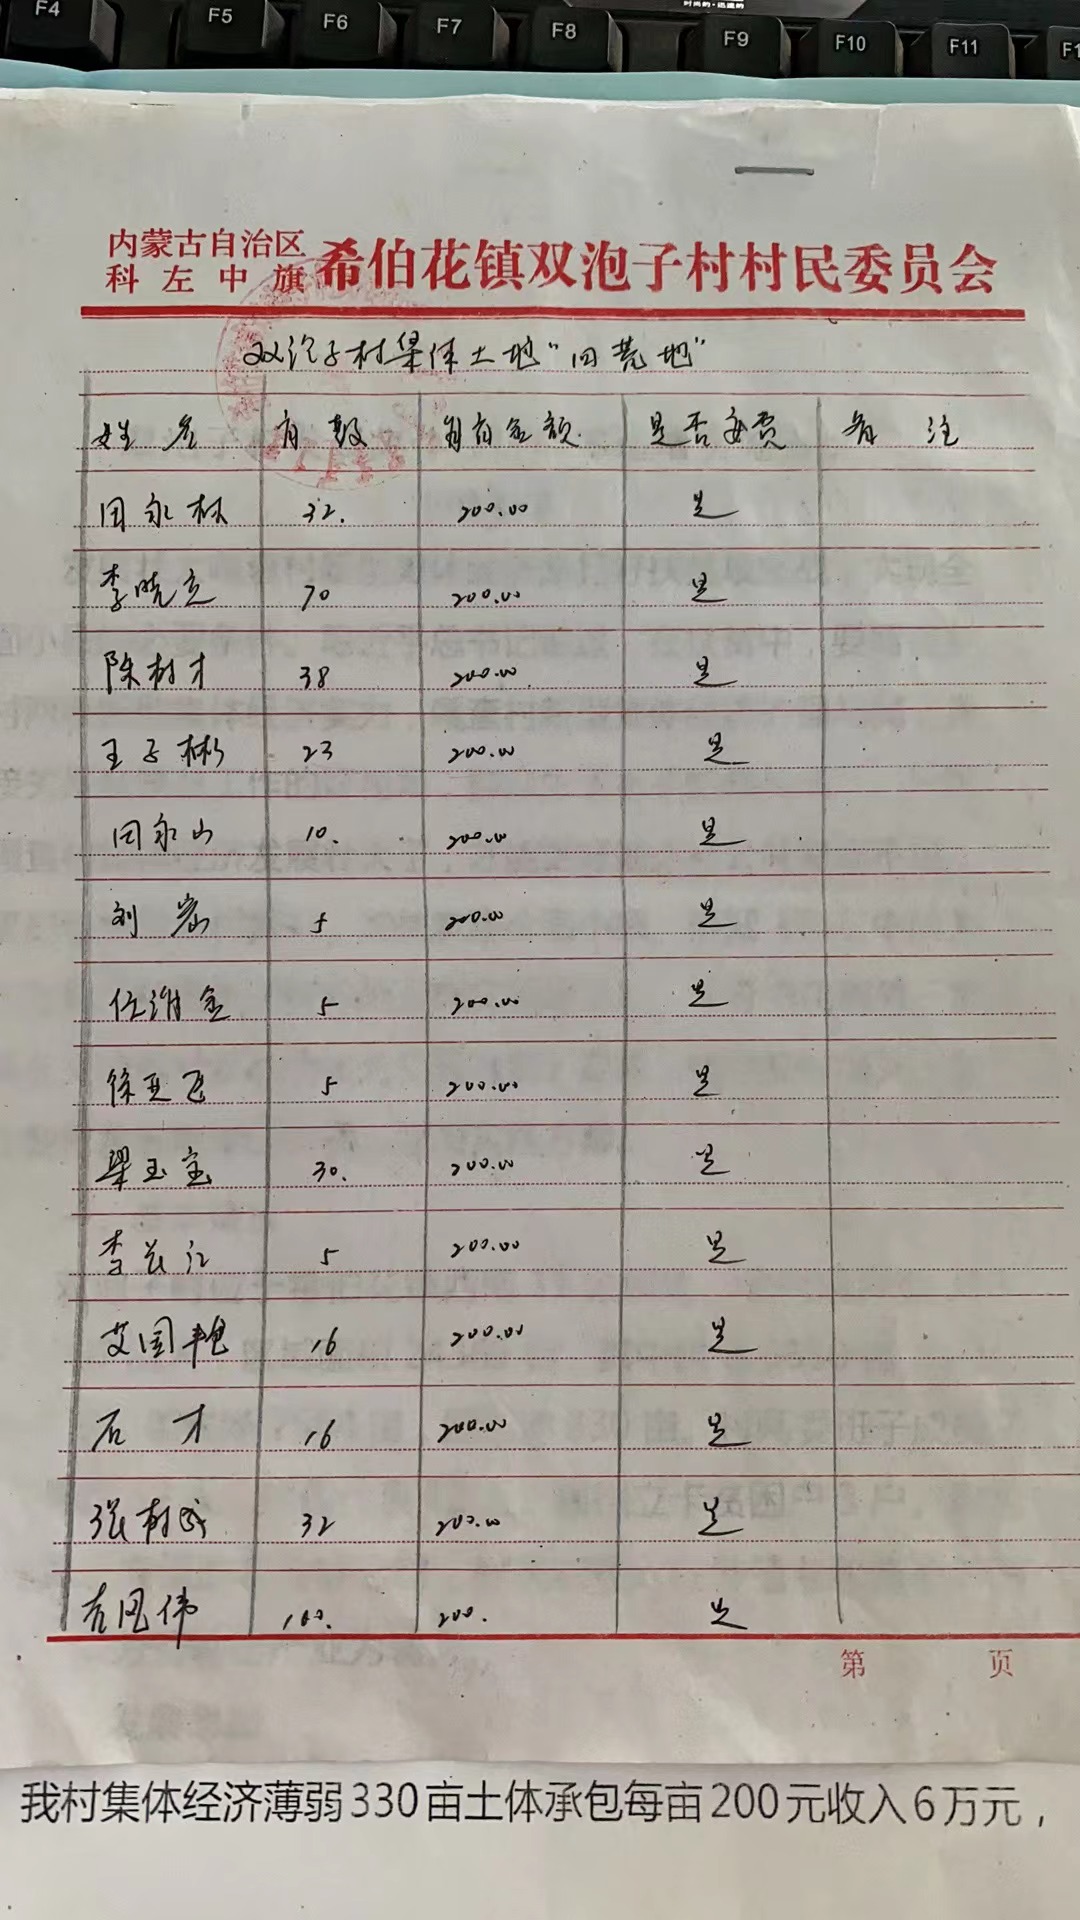 F4 F5 F6 F7 F8 F9 F10 F11 F1
时尚的·迅速的
内蒙古自治区
科左中旗 希伯花镇双泡子村村民委员会
双泡子村集体土地"四荒地"
姓名 亩数 每亩金额 是否交费 备注
田永林 32. 200.00 是
李晓立 70 200.00 是
陈树才 38 200.00 是
王子彬 23 200.00 是
田永山 10. 200.00 是
刘宏 5 200.00 是
任海金 5 200.00 是
徐亚飞 5 200.00 是
梁玉宝 30. 200.00 是
李长江 5 200.00 是
艾国艳 16 200.00 是
石才 16 200.00 是
张树成 32 200.00 是
100. 200. 是
第 页
我村集体经济薄弱330亩土体承包每亩200元收入6万元，